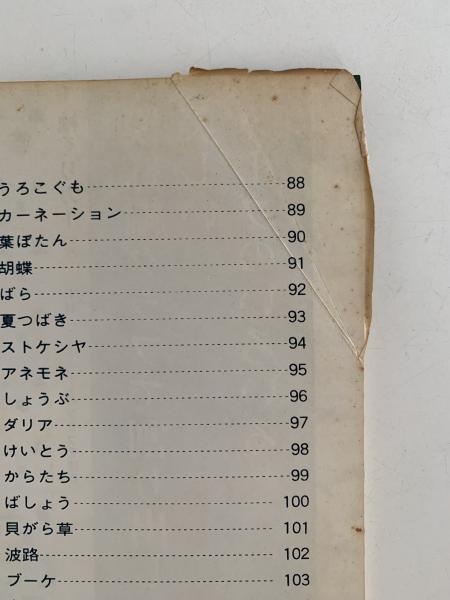 うろこぐも 88
カーネーション 89
葉ぼたん 90
胡蝶 91
ばら 92
夏つばき 93
ストケシヤ 94
アネモネ 95
しょうぶ 96
ダリア 97
けいとう 98
からたち 99
ばしょう 100
貝がら草 101
波路 102
ブーケ 103